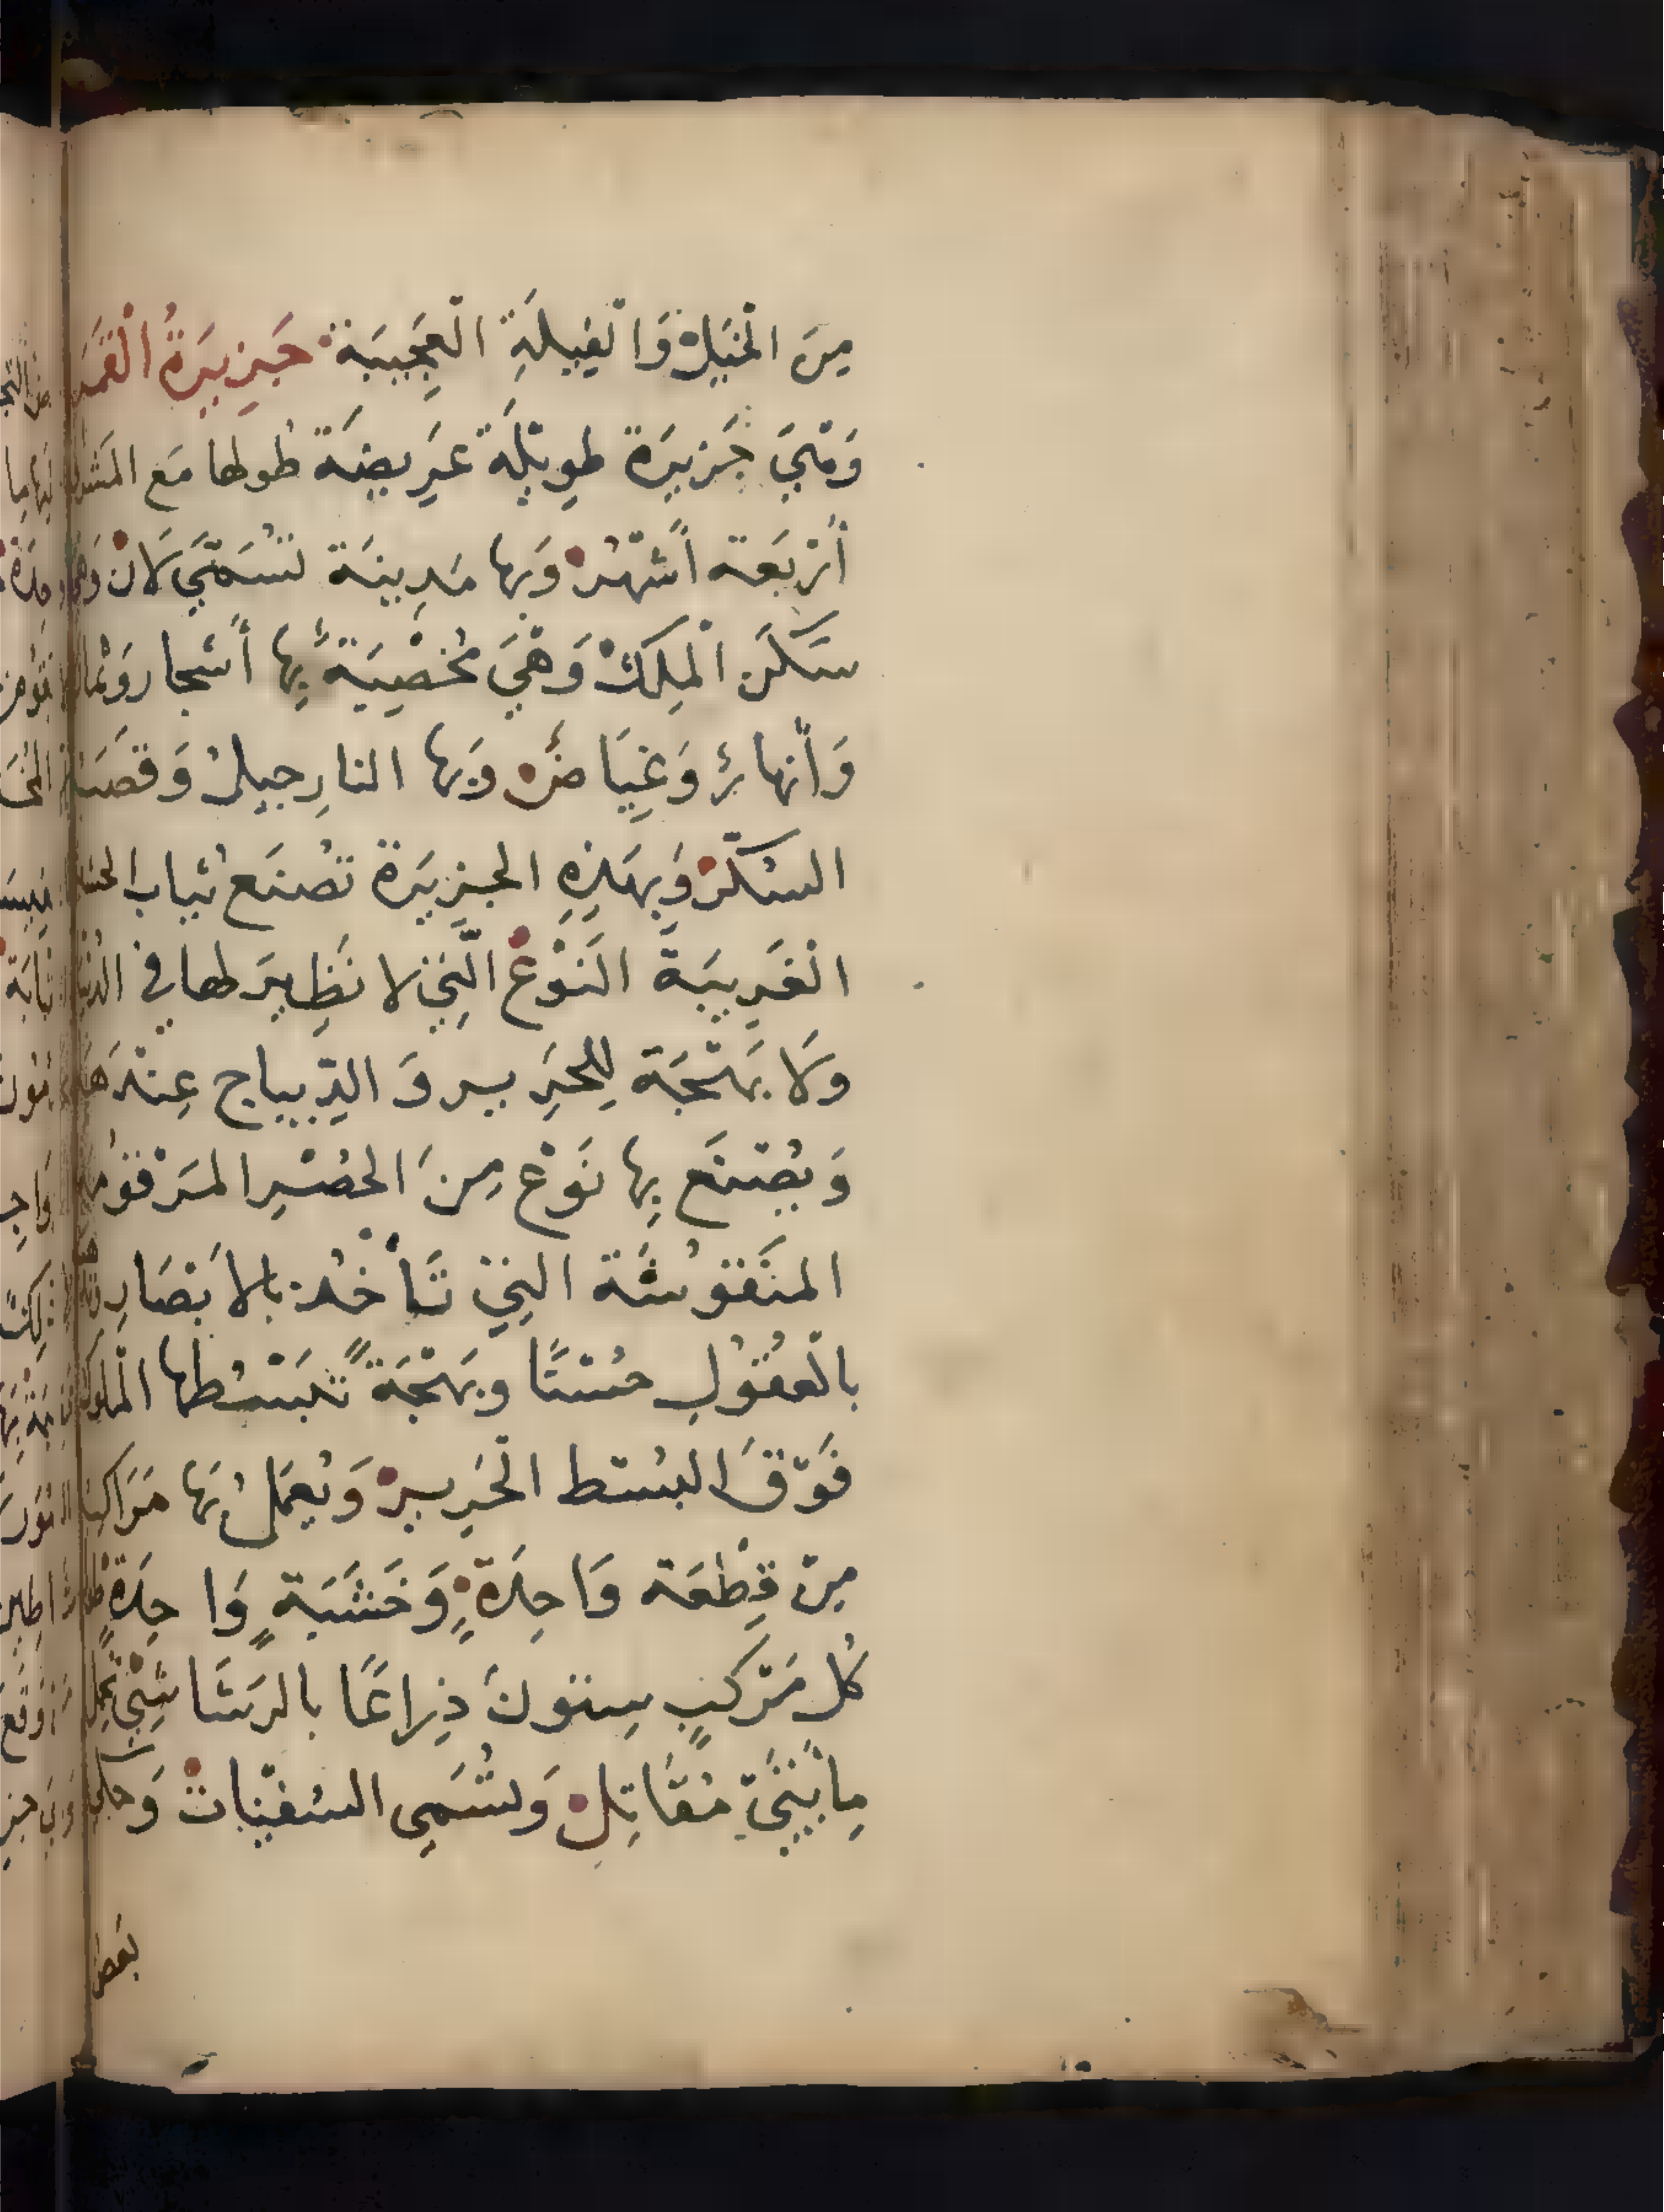 مِنَ الْخَيْلِ وَالْفِيلَةِ الْعَجِيبَة جَزِيرَةُ الْقَمَر
وَهِيَ جَزِيرَة طَوِيلَة عَرِيضَة طُولها مَع المَشرق
أَرْبَعَة أَشْهُر وَبِها مَدِينَة تُسَمَّى لَان وَهِيَ
سَكَن الْمَلِك وَهْيَ مُخْصِبَة بِها أَشجار وَثمار
وَأَنهارٌ وَغِيَاضٌ وَبِها النارجيل وَقَصَب
السُكّر وَبِهَذِهِ الجزِيرَة تُصْنَع ثياب الحشيش
الْغَرِيبَة النَوْع الّتِي لا نَظِيرَ لها في الدُنْيَا
وَلَا بَهْجَة لِلحَرِير وَالدِّيباج عِنْدَهَا
وَيُصْنَع بِها نَوْع مِنَ الحُصْرِ المَرْقُومَة
المنَقُوشَة التِي تَأْخُذ بالابْصَارِ
بالْعُقُولِ حُسْنًا وبَهْجَةً تَبْسُطها المُلوك
فَوْقَ البُسْط الْحَرِير وَيُعْمَلُ بِهَا مَرَاكب
مِنْ قِطْعَة وَاحِدَةٍ وَخَشَبَةٍ وَاحِدَةٍ طُول
كُل مَرْكبٍ سِتونَ ذِراعًا بالرَشَاشِيّ تحمِل
مِأْيَتَيْ مُقَاتِل وَتُسَمى السُفيّات وَحكى
بَعض